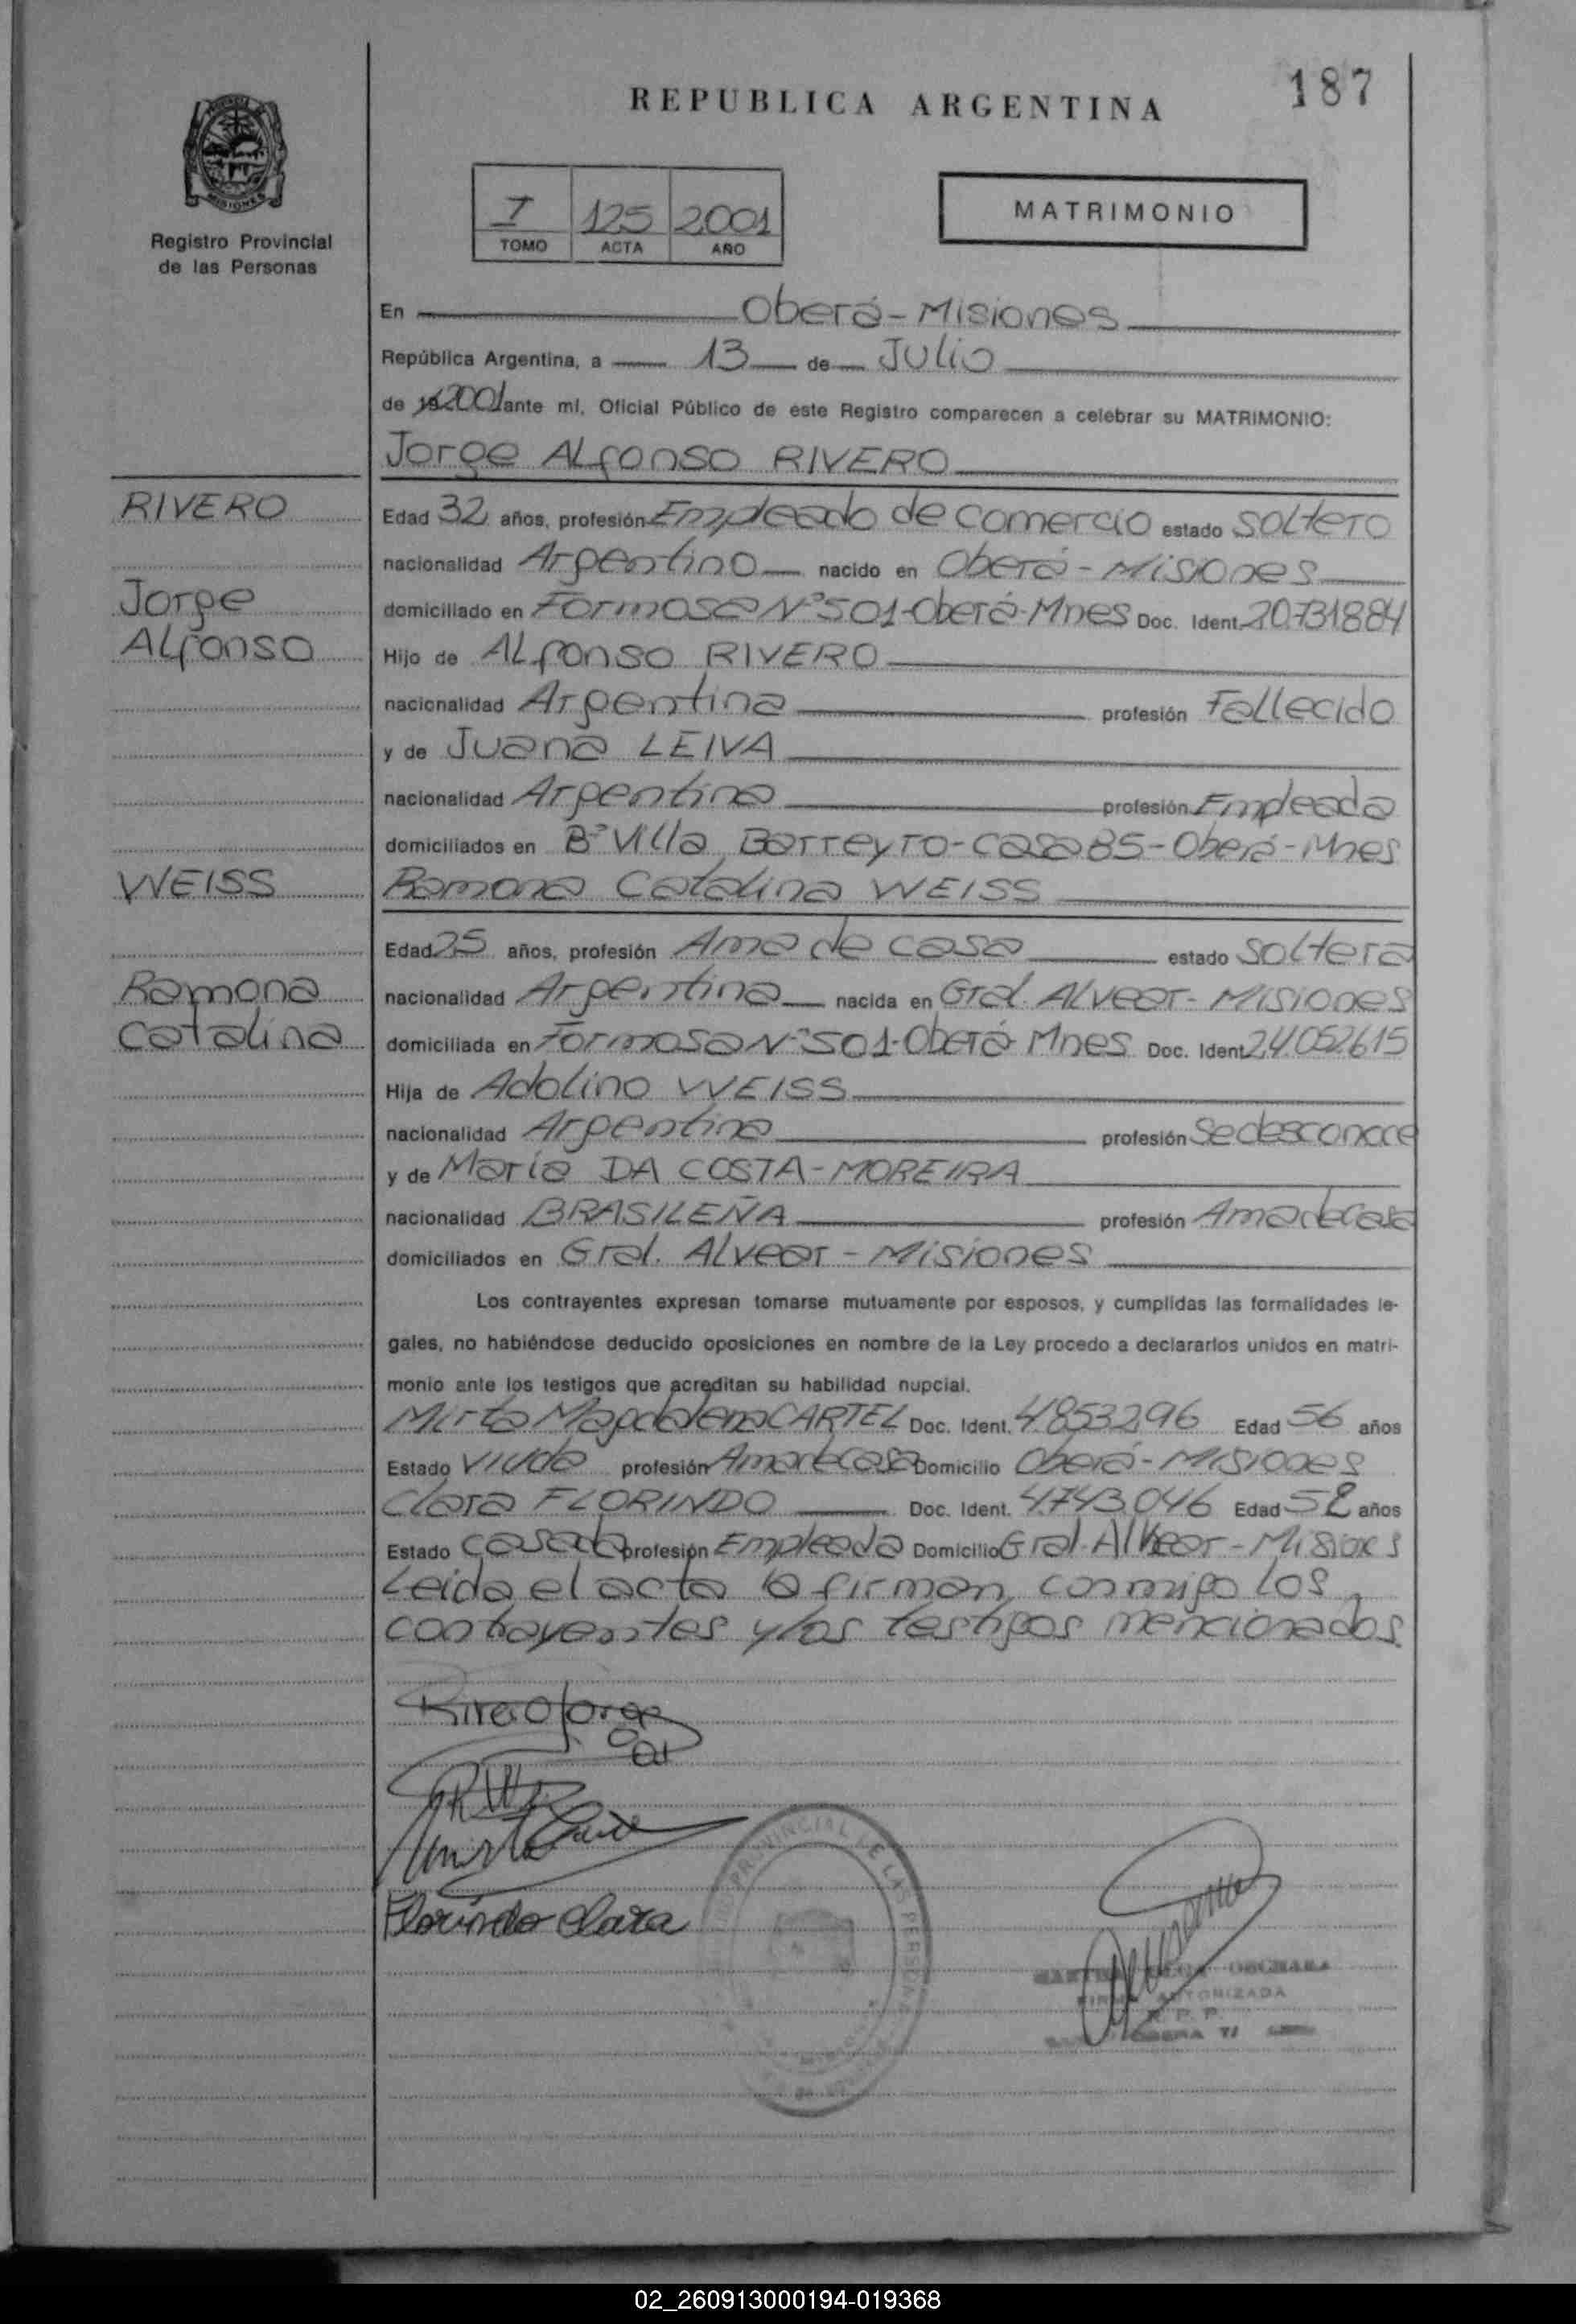 187
REPUBLICA ARGENTINA
I 125 2001
TOMO ACTA AÑO
MATRIMONIO
MISIONES
Registro Provincial
de las Personas
En Oberá - Misiones
República Argentina, a 13 de Julio
de 19 2001 ante mí, Oficial Público de este Registro comparecen a celebrar su MATRIMONIO:
Jorge Alfonso RIVERO
RIVERO
Edad 32 años, profesión Empleado de comercio estado soltero
nacionalidad Argentino nacido en Oberá - Misiones
Jorge
domiciliado en Formosa Nº 501-Oberá-Mnes Doc. Ident. 20.731884
Alfonso
Hijo de Alfonso RIVERO
nacionalidad Argentina profesión Fallecido
y de Juana LEIVA
nacionalidad Argentina profesión Empleada
domiciliados en Bº Villa Barreyro-casa 85-Oberá-Mnes
WEISS
Ramona Catalina WEISS
Edad 25 años, profesión Ama de casa estado soltera
Ramona
nacionalidad Argentina nacida en Gral. Alvear - Misiones
Catalina
domiciliada en Formosa Nº 501-Oberá-Mnes Doc. Ident. 24.052.615
Hija de Adolino WEISS
nacionalidad Argentina profesión Se desconoce
y de María DA COSTA-MOREIRA
nacionalidad BRASILEÑA profesión Ama de casa
domiciliados en Gral. Alvear - Misiones
Los contrayentes expresan tomarse mutuamente por esposos, y cumplidas las formalidades le-
gales, no habiéndose deducido oposiciones en nombre de la Ley procedo a declararlos unidos en matri-
monio ante los testigos que acreditan su habilidad nupcial.
Mirta Magdalena CARTEL Doc. Ident. 4.853296 Edad 56 años
Estado Viuda profesión Ama de casa Domicilio Oberá - Misiones
Clara FLORINDO Doc. Ident. 4.743.046 Edad 52 años
Estado casada profesión Empleada Domicilio Gral. Alvear - Misiones
Leida el acta la firman conmigo los
contrayentes y los testigos mencionados.
Rivero Jorge
Florindo Clara
PROVINCIAL DE LAS PERSONAS
FIRMA AUTORIZADA
02_260913000194-019368